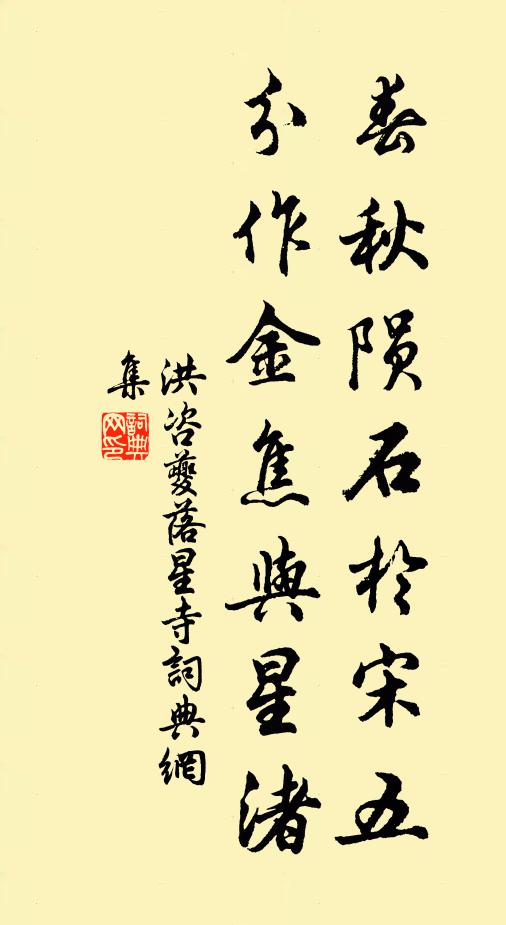 春秋陨石於宋五
分作金焦與星渚
洪咨夔落星寺詞典網
集
詞典
网印